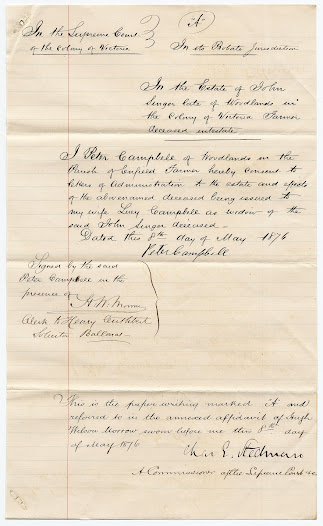 A
In the Supreme Court
of the Colony of Victoria
In its Probate Jurisdiction
In the Estate of John
Singer late of Woodlands in
the Colony of Victoria Farmer
deceased intestate
I Peter Campbell of Woodlands in the
Parish of Enfield Farmer hereby consent to
letters of Administration to the estate and effects
of the abovenamed deceased being issued to
my wife Lucy Campbell as widow of the
said John Singer deceased.
Dated this 8th day of May 1876
Peter Campbell
Signed by the said
Peter Campbell in the
presence of
H. W. Morrow
Clerk to Henry Cuthbert
Solicitor Ballarat
This is the paper writing marked A and
referred to in the annexed affidavit of Hugh
Wilson Morrow sworn before me this 8th day
of May 1876
E. Stedman
A Commissioner of the Supreme Court &c